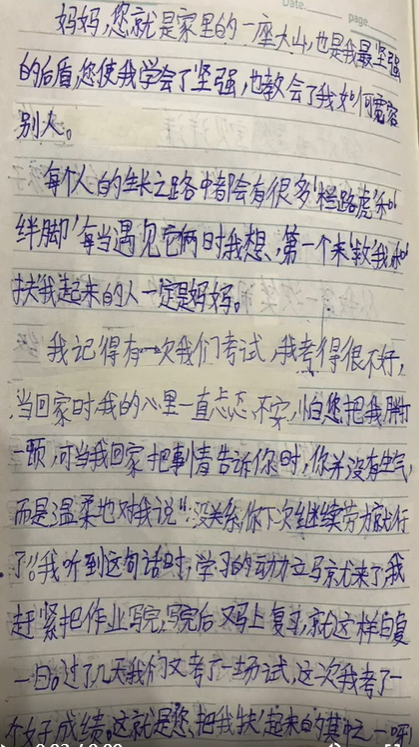 Date.
page.
妈妈,您就是家里的一座大山,也是我最坚强
的后盾,您使我学会了坚强,也教会了我如何宽容
别人。
每个人的生长之路中都会有很多'拦路虎'和'
绊脚'每当遇见它俩时我想,第一个来救我和
扶我起来的人一定是妈妈。
我记得有一次我们考试,我考得很不好,
当回家时我的心里一直忐忑不安,怕您把我胖打
一顿,可当我回家把事情告诉你时,你并没有生气,
而是温柔地对我说":没关系,你下次继续劳方就行
了,"我听到这句话时,学习的动力立马就来了,我
赶紧把作业写完,写完后又马上复习,就这样日复
一日。过了几天我们又考了一场试,这次我考了一
个好成绩。这就是您把我扶起来的其中之一呀